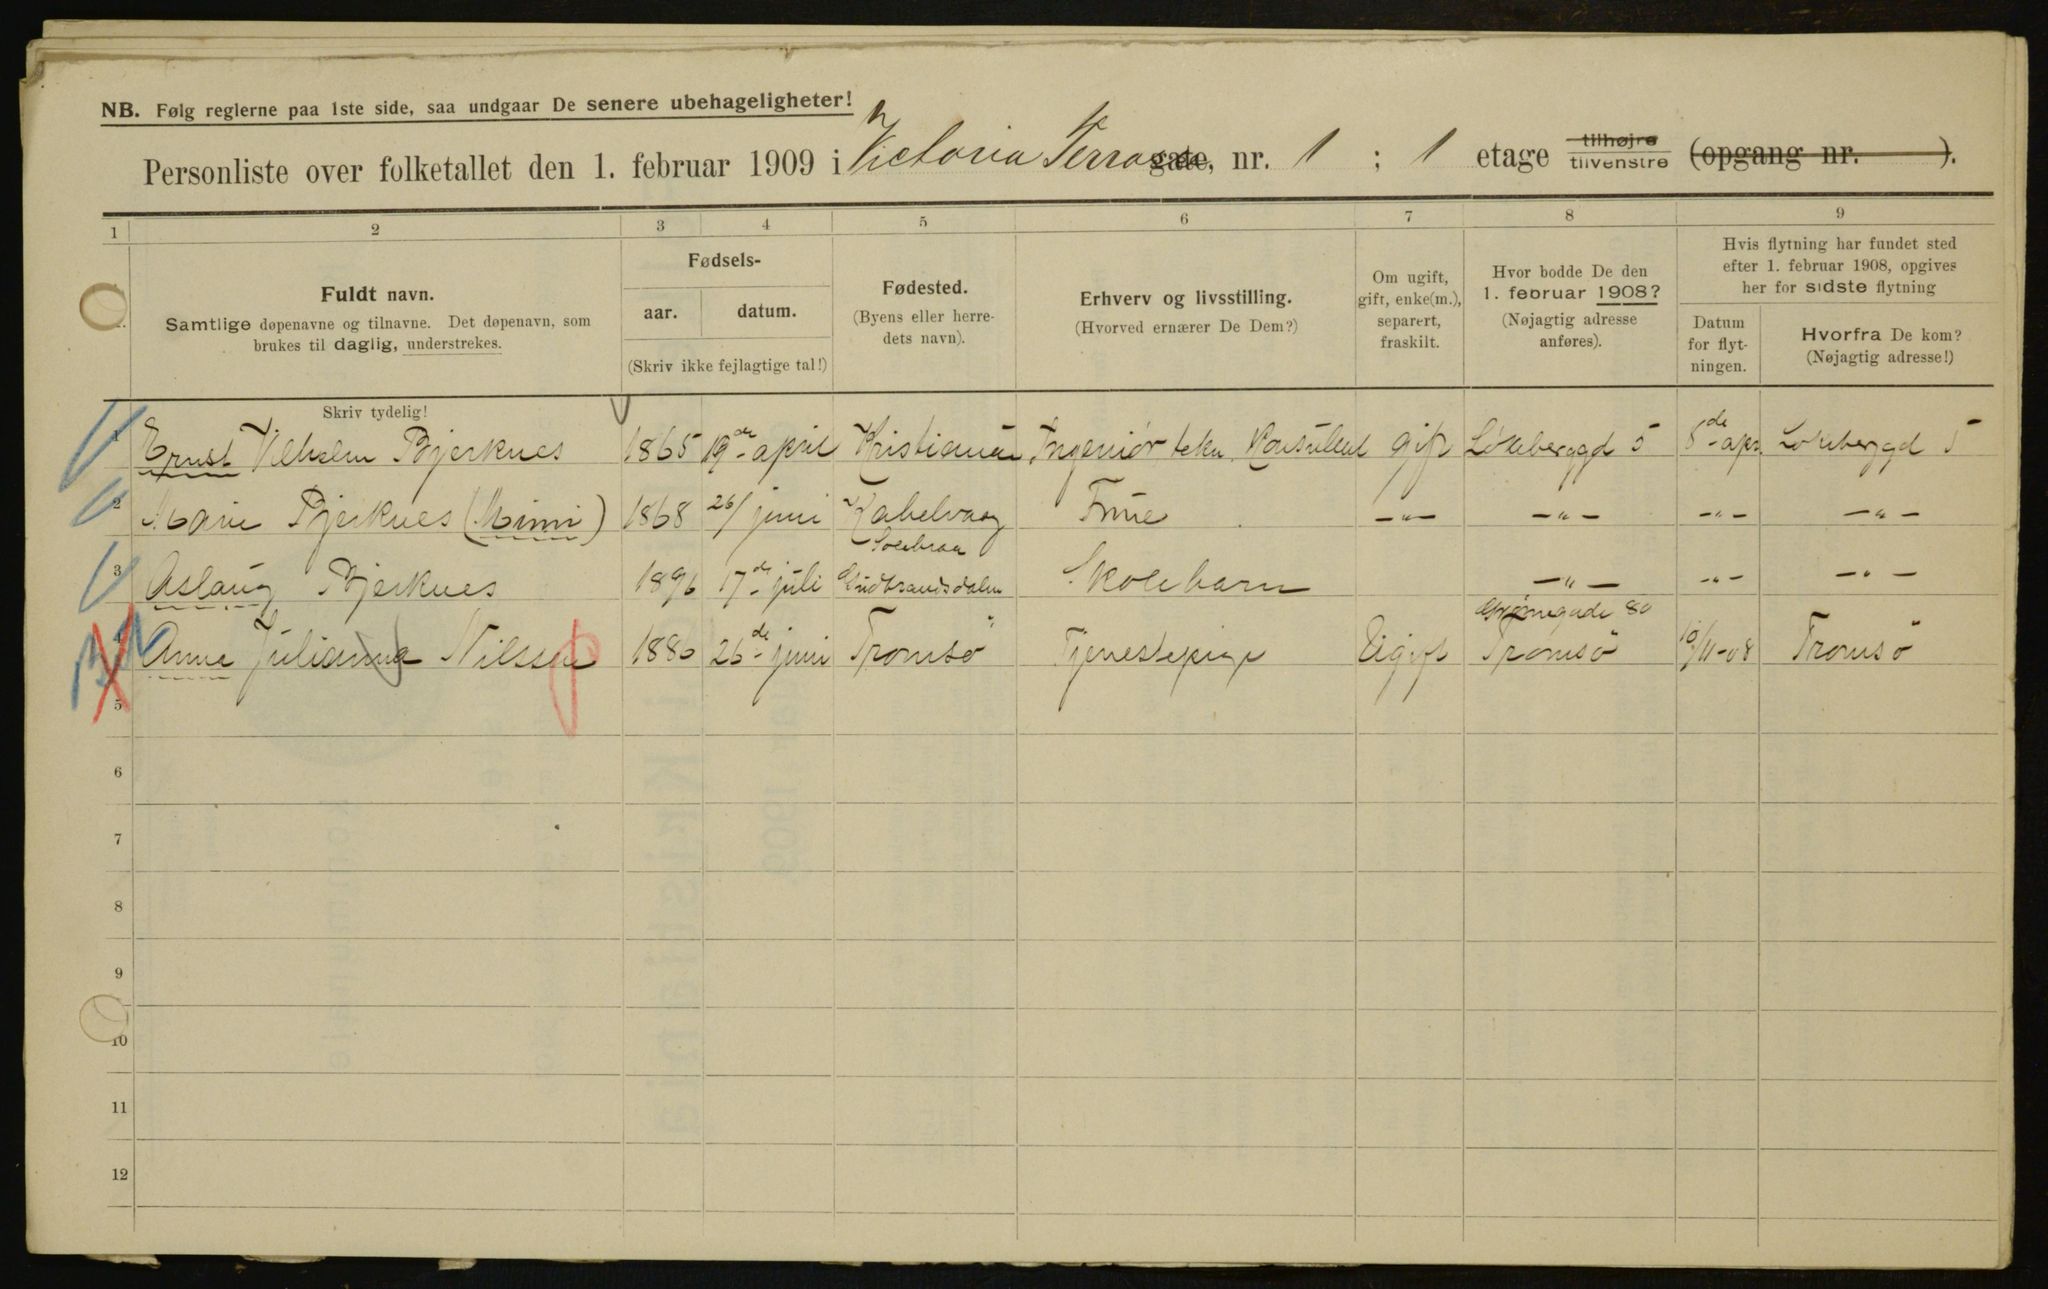 NB. Følg reglerne paa 1ste side, saa undgaar De senere ubehageligheter!
Personliste over folketallet den 1. februar 1909 i Victoria Terrasse gate, nr. 1 ; 1 etage tilhøjre tilvenstre (opgang nr. ).
1 2 3 4 5 6 7 8 9
Fuldt navn.
Samtlige døpenavne og tilnavne. Det døpenavn, som
brukes til daglig, understrekes.
Fødsels-
aar. datum.
(Skriv ikke fejlagtige tal!)
Fødested.
(Byens eller herre-
dets navn).
Erhverv og livsstilling.
(Hvorved ernærer De Dem?)
Om ugift,
gift, enke(m.),
separert,
fraskilt.
Hvor bodde De den
1. februar 1908?
(Nøjagtig adresse
anføres).
Hvis flytning har fundet sted
efter 1. februar 1908, opgives
her for sidste flytning
Datum
for flyt-
ningen.
Hvorfra De kom?
(Nøjagtig adresse!)
Skriv tydelig!
1 Ernst Vilhelm Bjerknes 1865 19de april Kristiania Ingeniör tekn. Konsulent gift Lökkeberggd 5 5de apr. Lökkeberggd 5
2 Marie Bjerknes (Mimi) 1868 26/ juni Kabelvaag Frue —"— —"— —"— —"—
3 Aslaug Bjerknes 1896 17de juli Gudbrandsdalen Skolebarn —"— —"— —"—
4 Anna Julianna Nilssen 1886 26de juni Tromsö Tjenestepige Ugift Grönnegade 80 Tromsö 10/11-08 Tromsö
5
6
7
8
9
10
11
12